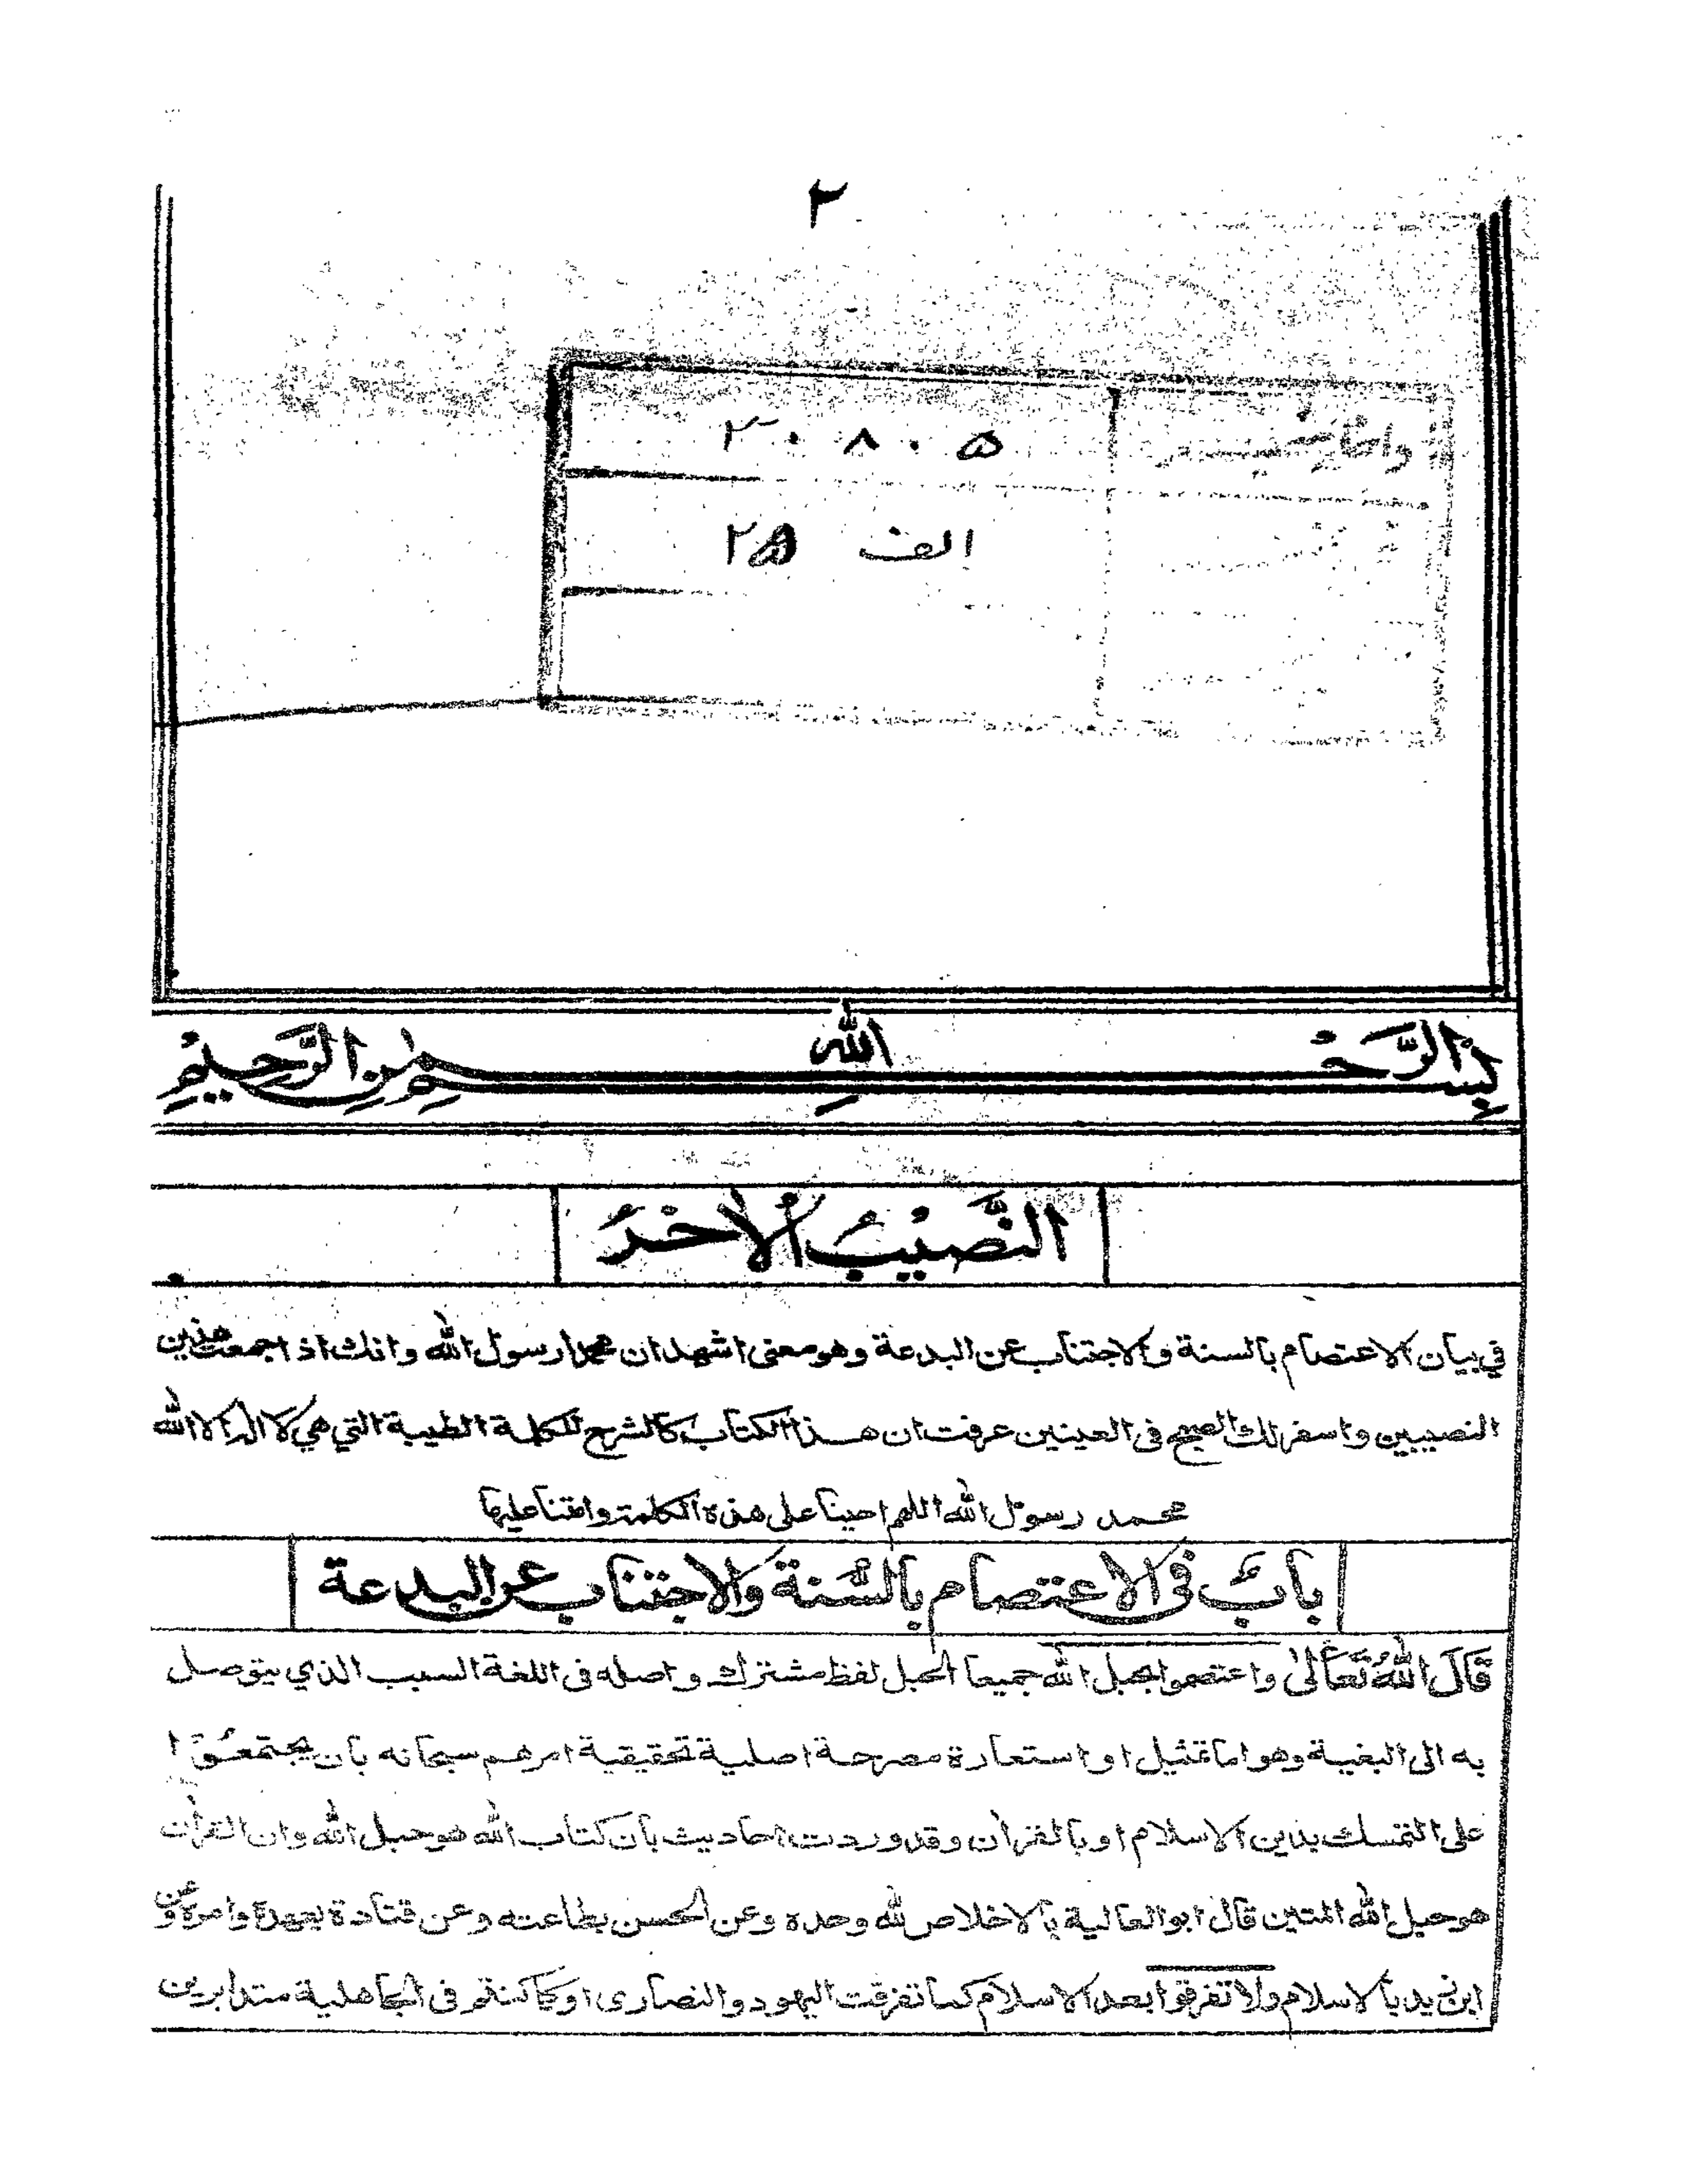 ٢
٣٠٨٠٥
الف ٢٥
بسم الله الرحمن الرحيم
النَّصِيْبُ الْاٰخَرُ
في بيان الاعتصام بالسنة والاجتناب عن البدعة وهو معنى اشهد ان محمدا رسول الله وانك اذا جمعت هذين
النصيبين واسفر لك الصبح فى العينين عرفت ان هذا الكتاب كالشرح للكلمة الطيبة التي هي لا اله الا الله
محمد رسول الله اللهم احينا على هذه الكلمة وامتنا عليها
باب فى الاعتصام بالسنة والاجتناب عن البدعة
قَالَ اللهُ تَعَالٰى واعتصموا بحبل الله جميعا الحبل لفظ مشترك واصله فى اللغة السبب الذي يتوصل
به الى البغية وهو اما تمثيل او استعارة مصرحة اصلية تحقيقية امرهم سبحانه بان يجتمعوا
على التمسك بدين الاسلام او بالقرآن وقد وردت احاديث بان كتاب الله هو حبل الله وان القرآن
هو حبل الله المتين قال ابو العالية بالاخلاص لله وحده وعن الحسن بطاعته وعن قتادة بعهده وامره وعن
ابن زيد بالاسلام ولا تفرقوا بعد الاسلام كما تفرقت اليهود والنصارى او كما كنتم فى الجاهلية متدابرين